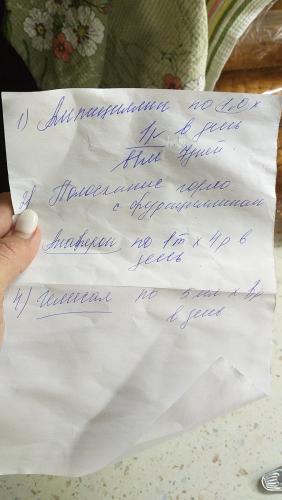 1) Ампициллин по 1,0 х
1р в день
в/м 7 дней
2) Полоскание горла
с фурациллином
Анаферон по 1т х 4р в
день
4) Гелисал по 5 мл х 3р
в день